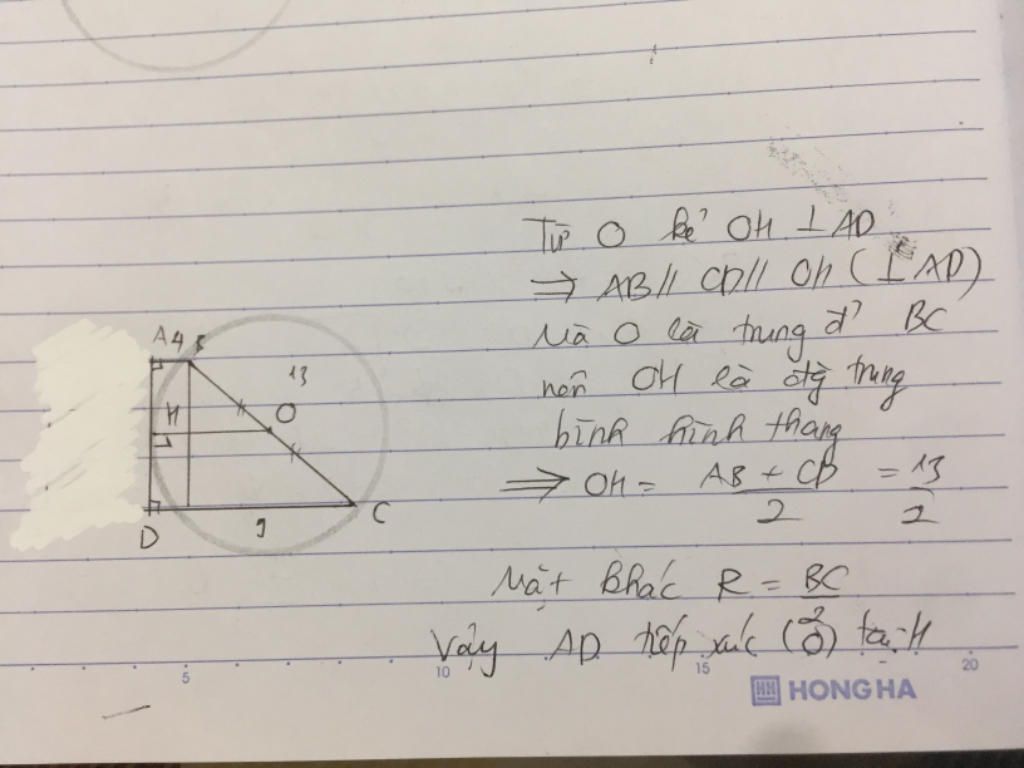 Từ O kẻ OH ⊥ AD
⇒ AB // CD // OH (⊥ AD)
Mà O là trung đ' BC
nên OH là đg trung
bình hình thang
⇒ OH = AB + CD / 2 = 13 / 2
Mặt khác R = BC / 2
Vậy AD tiếp xúc (O) tại H
A 4 B
13
H O
D 9 C
5 10 15 20
HH HONG HA